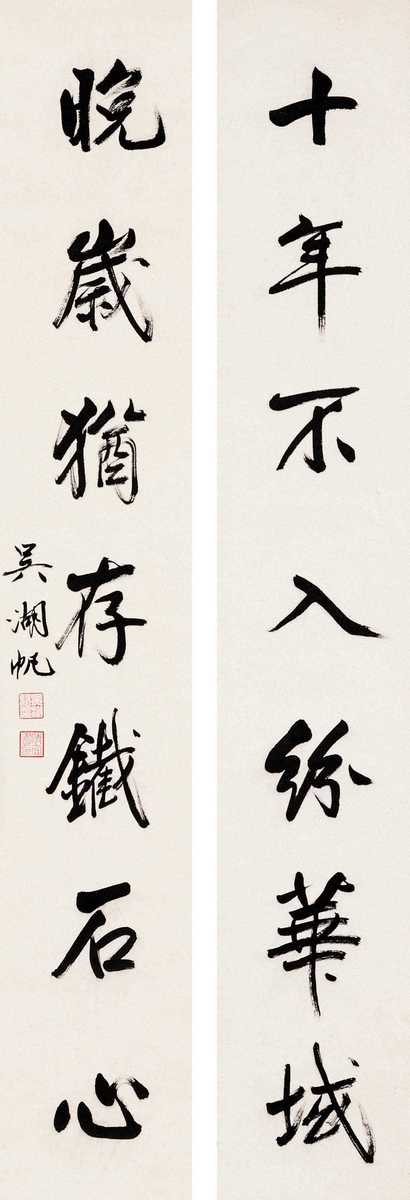 十年不入紛華域
晚歲猶存鐵石心
吳湖帆